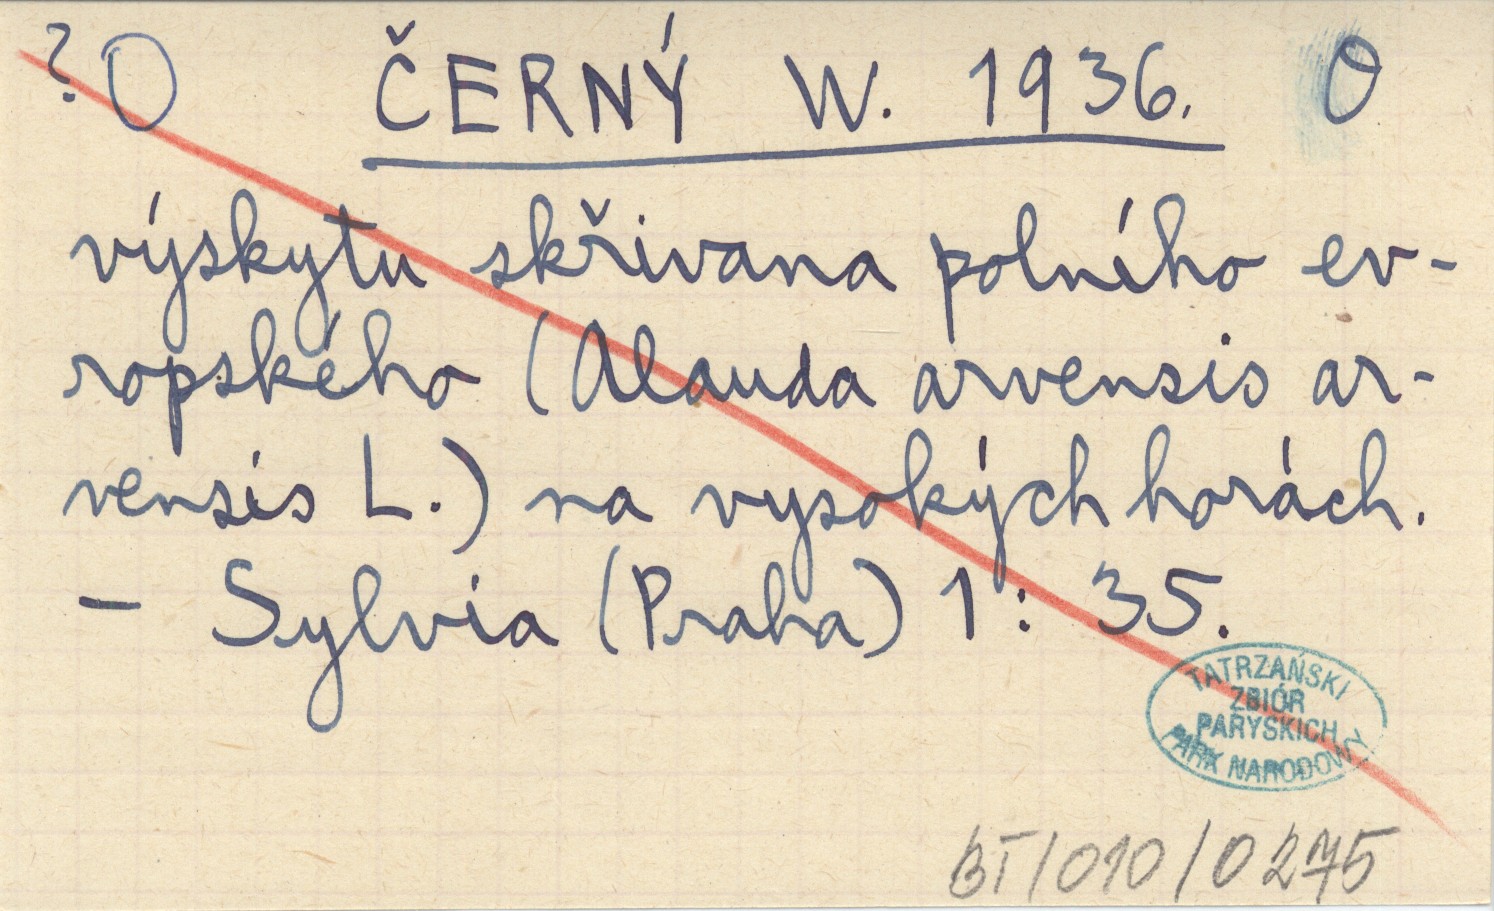 ? O ČERNÝ W. 1936. O
výskytu skřivana polního ev-
ropského (Alauda arvensis ar-
vensis L.) na vysokých horách.
– Sylvia (Praha) 1 : 35.
TATRZAŃSKI
ZBIÓR
PARYSKICH
PARK NARODOWY
BT/010/0275